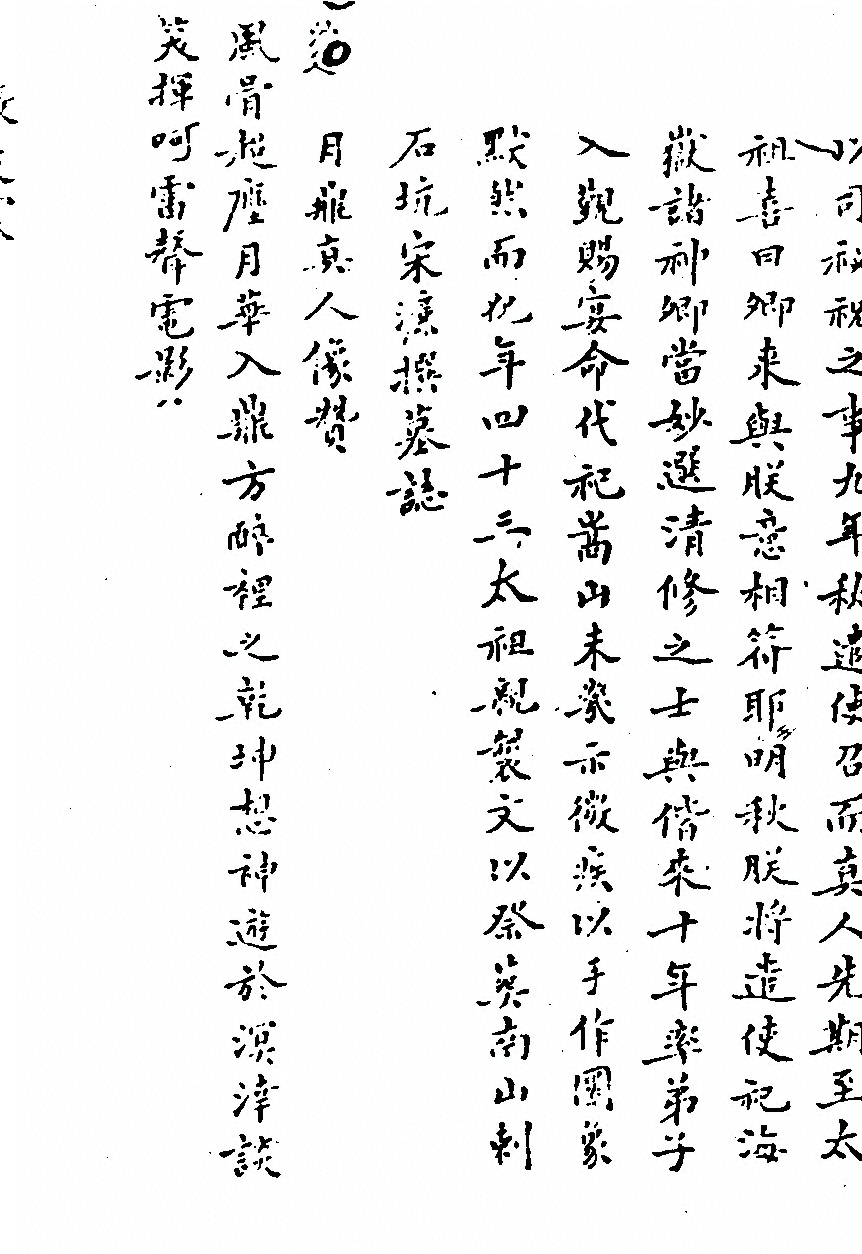 以司祝之事九年秋遣使召而真人先期至太
祖喜曰卿来與朕意相符耶明秋朕將遣使祀海
嶽諸神卿當妙選清修之士與偕來十年率弟子
入覲賜宴命代祀嵩山未幾示微疾以手作圜象
默然而化年四十三太祖親製文以祭葬南山刺
石坑宋濂撰墓誌
月鼎真人像贊
風骨超塵月華入鼎方醉裡之乾坤想神遊於溟涬談
笑揮呵雷聲電影